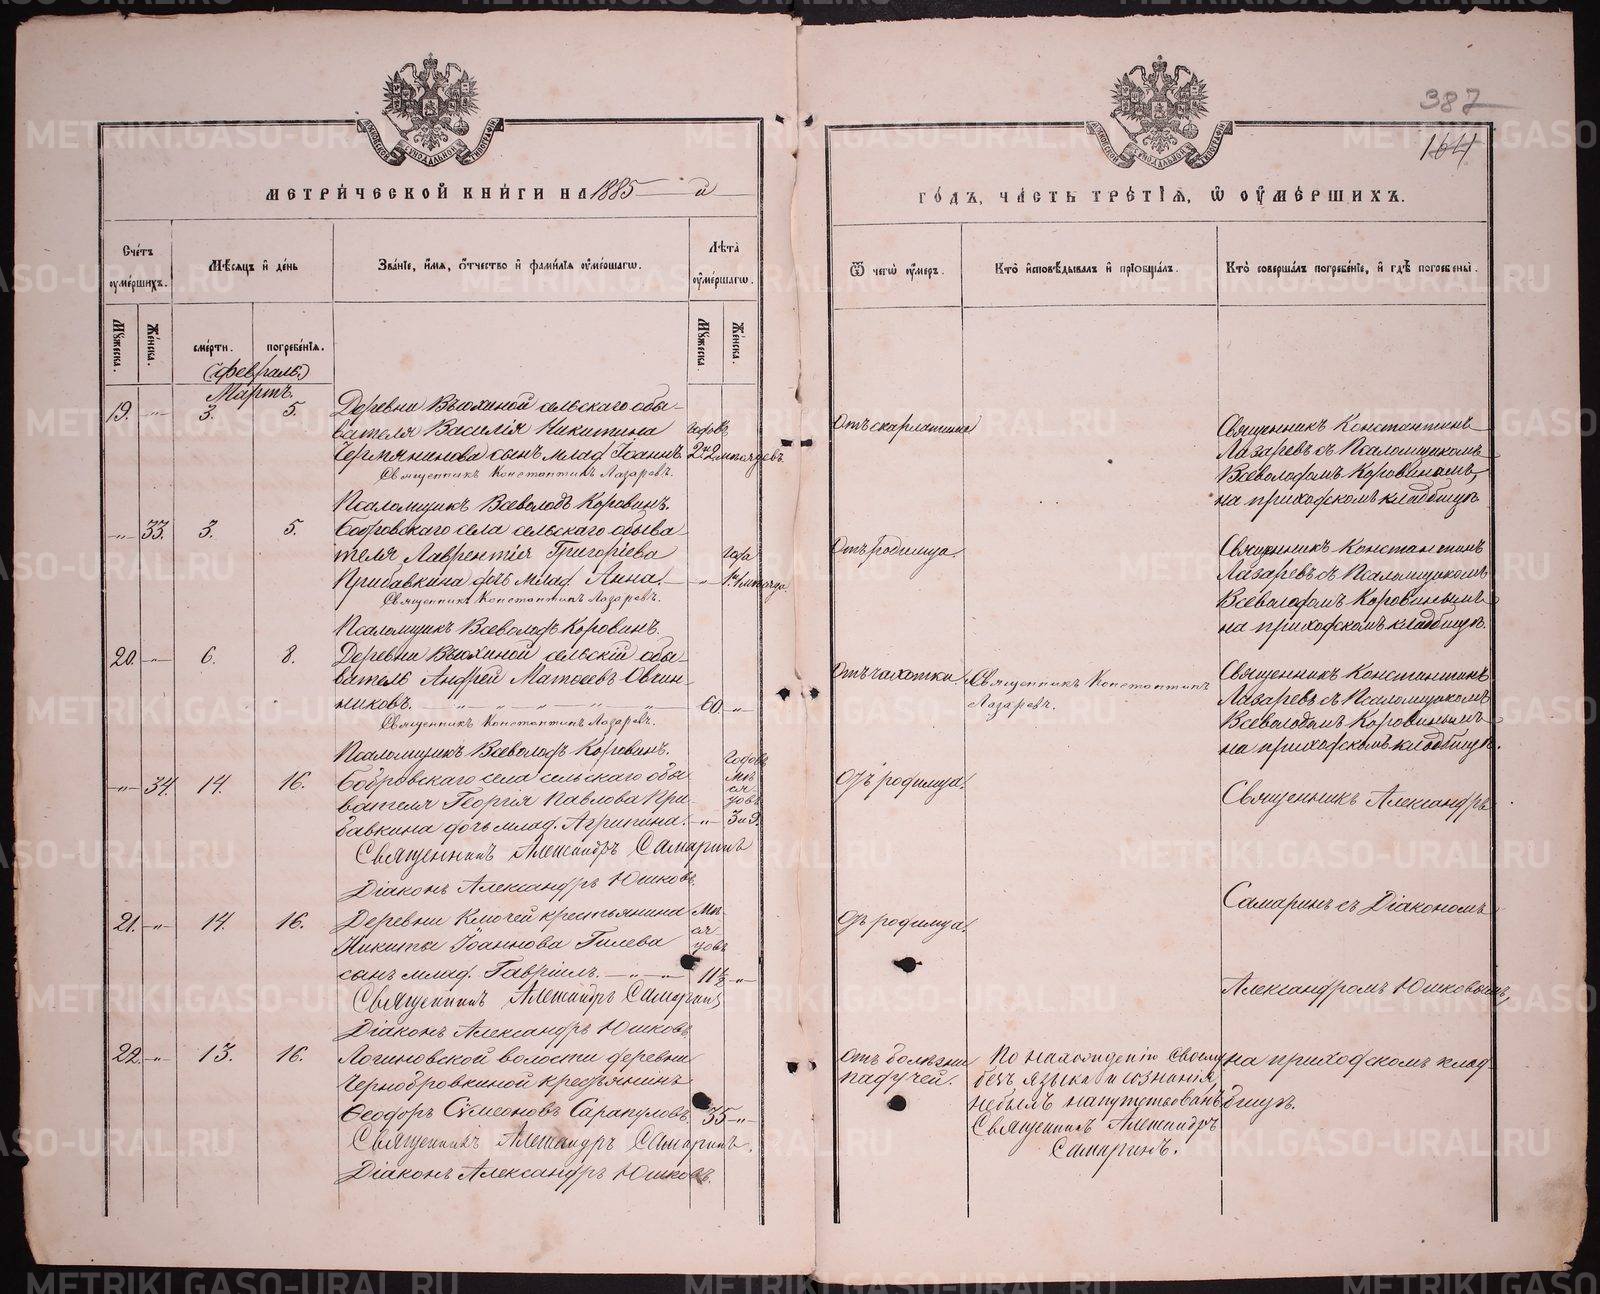 387
164
МЕТРИ́ЧЕСКОЙ КНИ́ГИ НА 1885 й
ГО́ДЪ, ЧА́СТЬ ТРЕ́ТІЯ, Ѽ ОУМЕ́РШИХЪ.
Сче́тъ оуме́ршихъ.
Мѣ́сяцъ и де́нь
Зва́ніе, и́мя, о́тчество и фами́лія оуме́ршагѡ.
Лѣ́та оуме́ршагѡ.
Ѿ чегѡ̀ оу́меръ.
Кто̀ исповѣ́дывалъ и пріобща́лъ.
Кто̀ соверша́лъ погребе́ніе, и гдѣ̀ погребены̀.
Му́жеска. Же́нска.
сме́рти. погребе́нія.
Му́жеска. Же́нска.
(Февраль)
Мартъ.
19. -"- 3. 5. Деревни Вьюхиной сельскаго обы-
вателя Василія Никитина годовъ
Чермянинова сынъ млад. Іоаннъ 2 и 2 месяцевъ.
Священникъ Константинъ Лазаревъ.
Псаломщикъ Всеволодъ Коровинъ.
Отъ скарлатины
Священникъ Константинъ
Лазаревъ съ Псаломщикомъ
Всеволодомъ Коровинымъ,
на приходскомъ кладбищѣ.
-"- 33. 3. 5. Бобровскаго села сельскаго обыва
теля Лаврентія Григоріева года
Прибавкина дочь млад. Анна. " 1 и 1 месяца.
Священникъ Константинъ Лазаревъ.
Псаломщикъ Всеволодъ Коровинъ.
Отъ родимца.
Священникъ Константинъ
Лазаревъ съ Псаломщикомъ
Всеволодомъ Коровинымъ
на приходскомъ кладбищѣ.
20. -"- 6. 8. Деревни Вьюхиной сельскій обы-
ватель Андрей Матѳеевъ Овчин-
никовъ. -"-"-"-"-"- 60 "
Священникъ Константинъ Лазаревъ.
Псаломщикъ Всеволодъ Коровинъ.
Отъ чахотки. Священникъ Константинъ
Лазаревъ.
Священникъ Константинъ
Лазаревъ съ Псаломщикомъ
Всеволодомъ Коровинымъ
на приходскомъ кладбищѣ.
-"- 34. 14. 16. Бобровскаго села сельскаго обы
вателя Георгія Павлова При-
бавкина дочь млад. Агрипина. -"- Годовъ мѣсяцовъ 3 и 9.
Священникъ Александръ Самаринъ
Діаконъ Александръ Юшковъ.
Отъ родимца.
Священникъ Александръ
21. -"- 14. 16. Деревни Ключей крестьянина Мѣ-
Никиты Іоаннова Гилева ся-
цовъ
сынъ млад. Гавріилъ. -"-"- 11½ -"-
Священникъ Александръ Самаринъ
Діаконъ Александръ Юшковъ
Отъ родимца.
Самаринъ съ Діакономъ
Александромъ Юшковымъ,
22. -"- 13. 16. Логиновской волости деревни
Чернобровкиной крестьянинъ
Ѳеодоръ Сѵмеоновъ Сарапуловъ. 35 -"-
Священникъ Александръ Самаринъ.
Діаконъ Александръ Юшковъ.
отъ болѣзни
падучей.
По нахожденію своему
безъ языка и сознанія,
небылъ напутствованъ
Священникъ Александръ
Самаринъ.
на приходскомъ клад-
бищѣ.